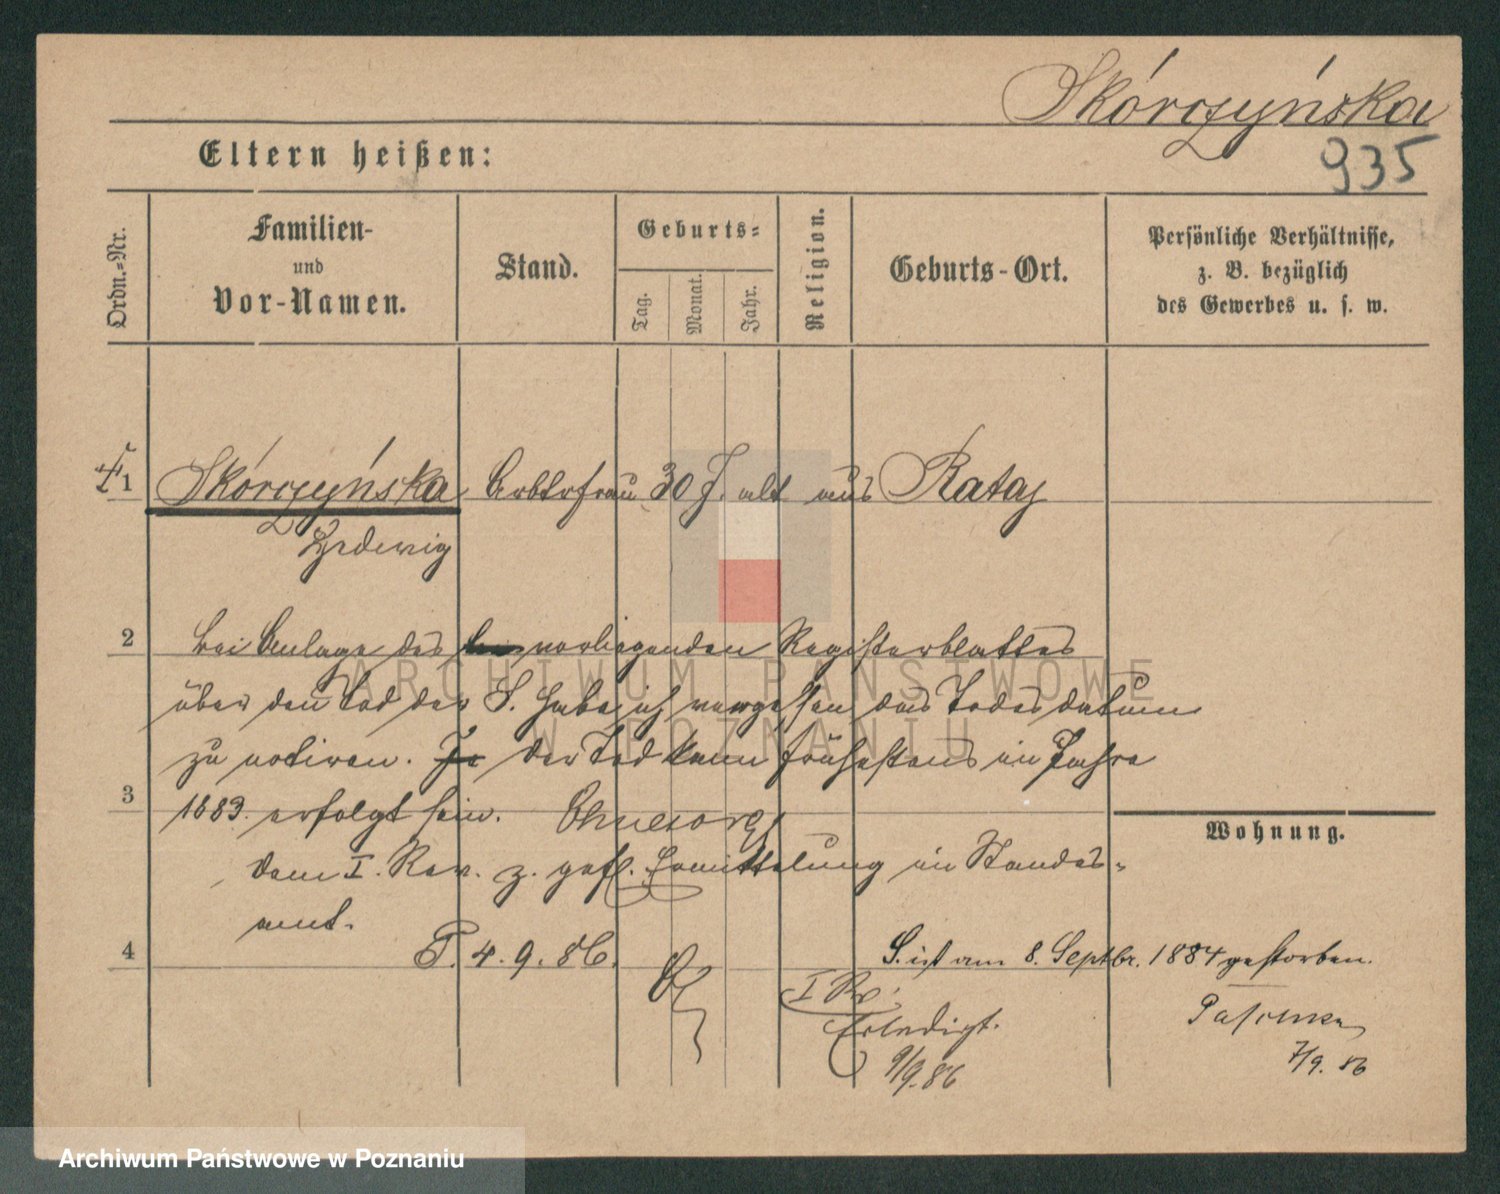 Skórczyńska
935
Eltern heißen:
Ordn.-Nr.
Familien-
und
Vor-Namen.
Stand.
Geburts-
Tag.
Monat.
Jahr.
Religion.
Geburts-Ort.
Persönliche Verhältnisse,
z. B. bezüglich
des Gewerbes u. s. w.
1 Skórczyńska Arbtrfrau 30 J. alt aus Rataj
Hedwig
2 bei Anlage des vorliegenden Registerblattes
über den Tod der S. habe ich vergessen das Todesdatum
zu notiren. Der Tod kann frühestens im Jahre
3 1883 erfolgt sein.
Wohnung.
dem I. Rev. z. gefl. Ermittelung im Standes-
amt.
4 P. 4. 9. 86.
S. ist am 8. Septbr. 1884 gestorben.
I Rv.
Erledigt.
9/9. 86
7/9. 86
ARCHIWUM PAŃSTWOWE
W POZNANIU
Archiwum Państwowe w Poznaniu